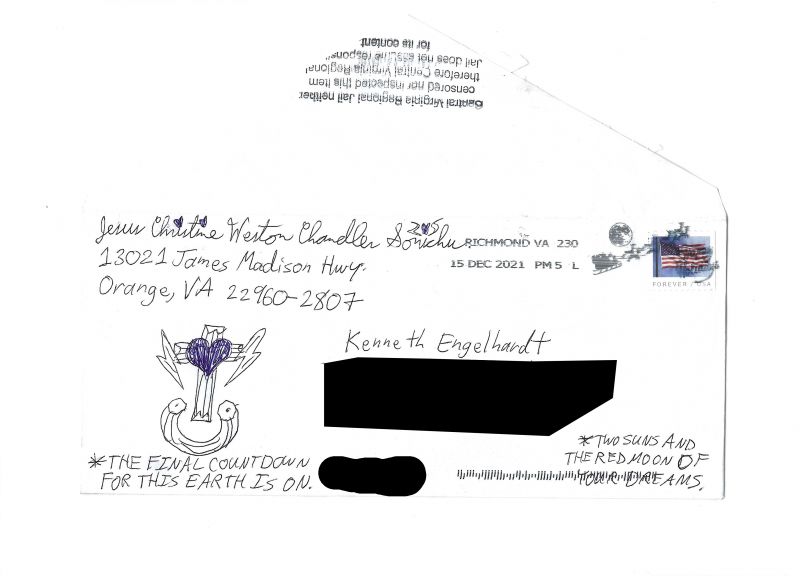 Central Virginia Regional Jail neither
censored nor inspected this item
therefore Central Virginia Regional
Jail does not assume
for its content
Jesus Christine Weston Chandler Sonichu
RICHMOND VA 230
13021 James Madison Hwy.
15 DEC 2021 PM 5 L
Orange, VA 22960-2807
FOREVER / USA
Kenneth Engelhardt
*TWO SUNS AND
THE RED MOON OF
YOUR DREAMS.
*THE FINAL COUNTDOWN
FOR THIS EARTH IS ON.